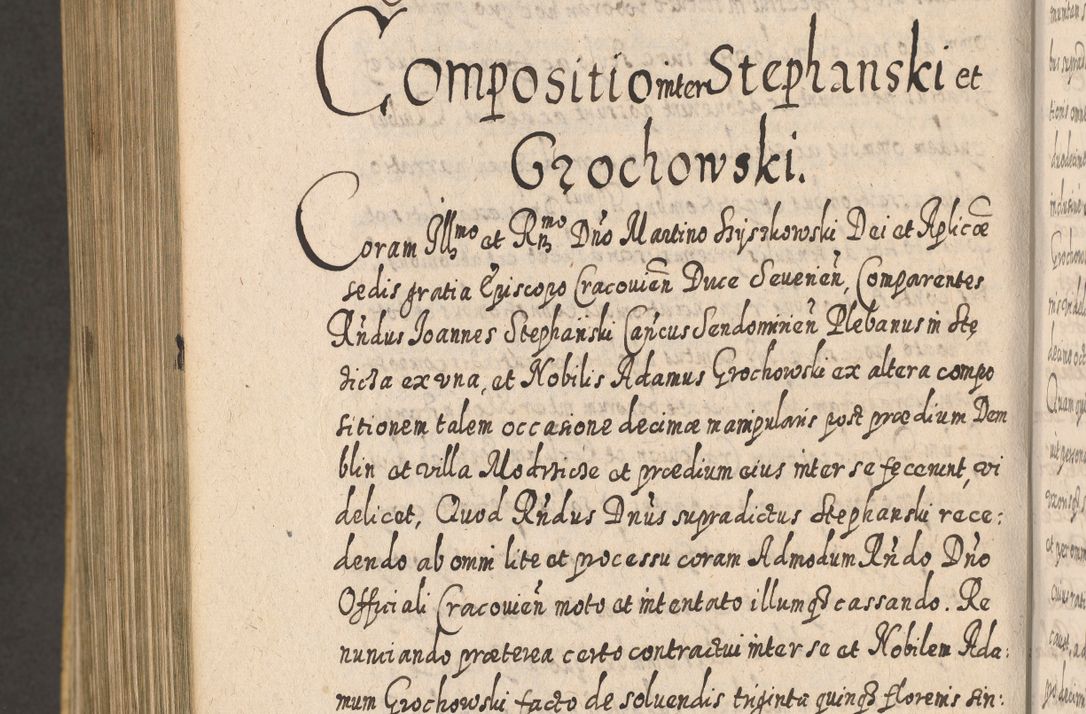 Compositio inter Stephanski et
Grochowski.
Coram Illmo et Rmo Dño Martino Szyszkowski Dei et Aplicæ
sedis gratia Episcopo Cracovieñ Duce Severieñ, Comparentes
Rñdus Joannes Stephanski Cañcus Sendomirieñ Plebanus in Stę
zicza ex vna, et Nobilis Adamus Grochowski ex altera compo
sitionem talem occasione decimæ manipularis post prædium Dem
blin et villa Modrzicze et prædium eius inter se fecerunt, vi
delicet, Quod Rñdus Dñus supradictus Stephanski rece:
dendo ab omni lite et processu coram Admodum Rñdo Dño
Officiali Cracovieñ moto et intentato illumqȝ cassando. Re
nunciando præterea certo contractui inter se et Nobilem Ada:
mum Grochowski facto de solvendis triginta quinqȝ florenis sin: